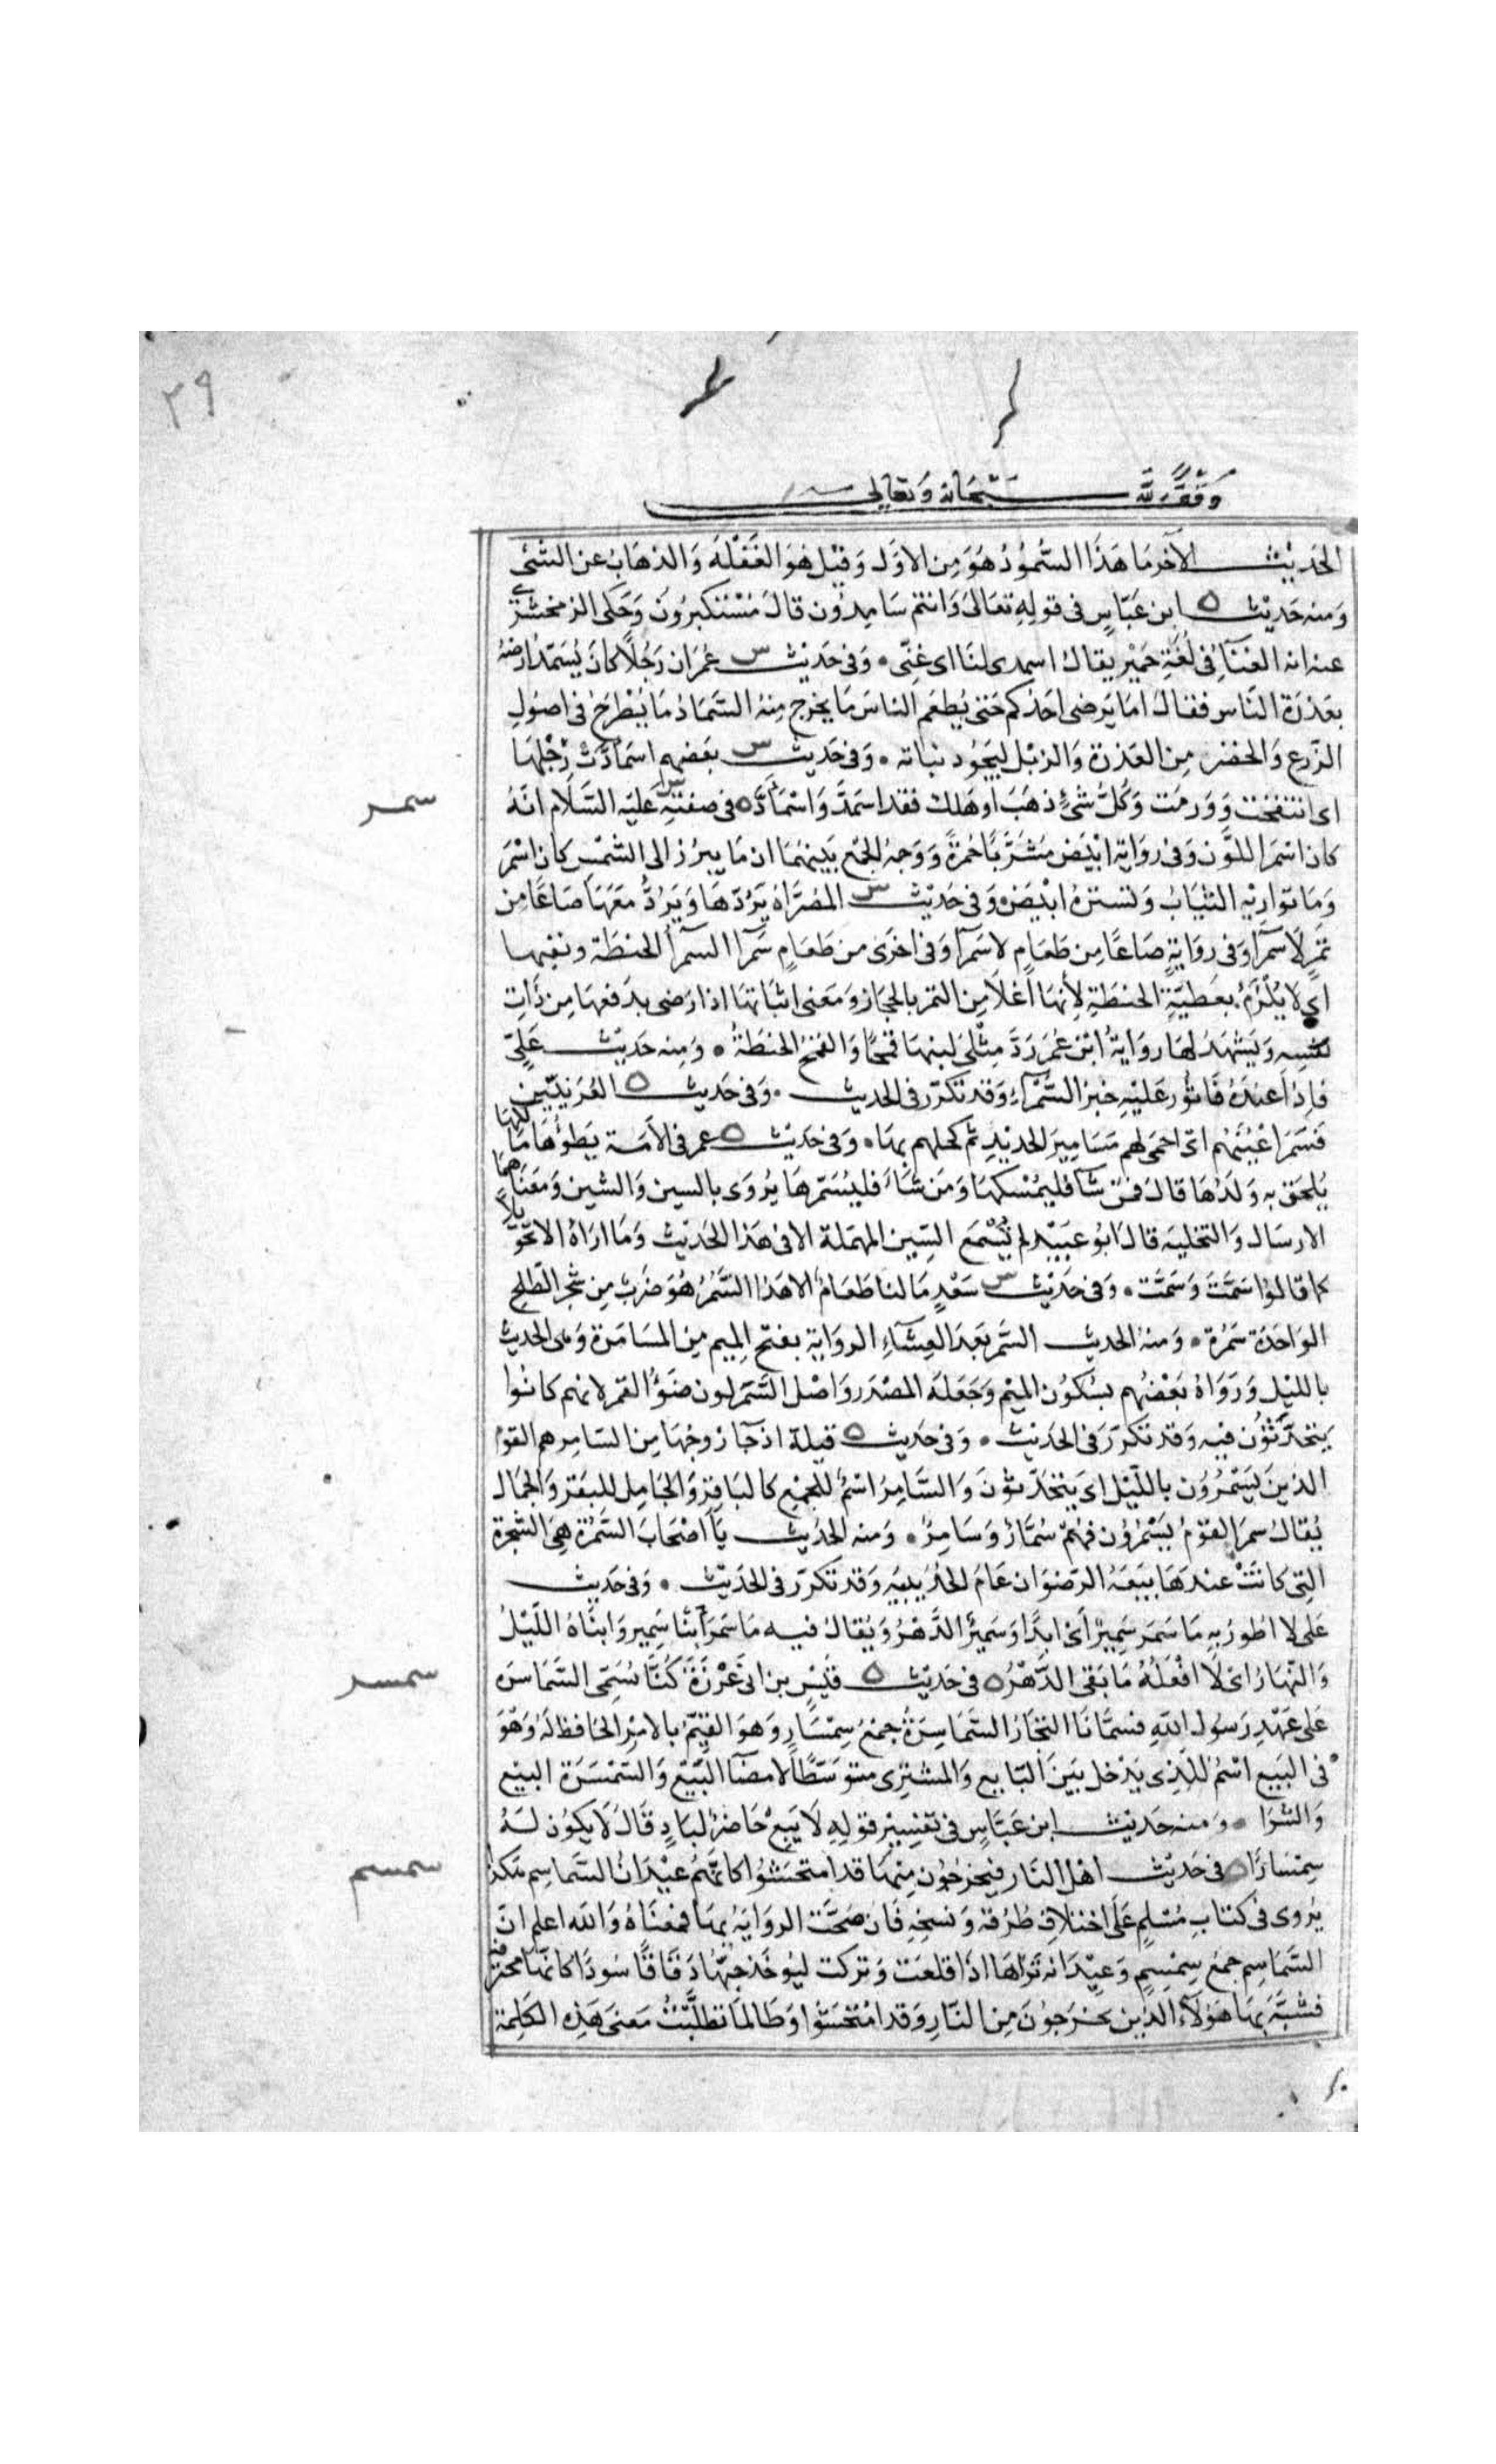 ٢٩
وقف لله سبحانه وتعالى
الحديث الآخر ما هذا السمود هو من الاول وقيل هو الغفلة والذهاب عن الشئ
ومنه حديث ه ابن عباس فى قوله تعالى وانتم سامدون قال مستكبرون وحكى الزمخشرى
عنه انه الغناء فى لغة حمير يقال اسمدى لنا اى غنى ۰ وفى حديث س عمران رجلا كان يسمد ارضه
بعذرة الناس فقال اما يرضى احدكم حتى يطعم الناس ما يخرج منه السماد ما يطرح فى اصول
الزرع والخضر من العذرة والزبل ليجود نباته ۰ وفى حديث س بعضهم اسمادت رجلها
اى انتفخت وورمت وكل شئ ذهب او هلك فقد اسمد واسماد ه فى صفته س عليه السلام انه
سمر
كان اسمر اللون وفى رواية ابيض مشربا حمرة ووجه الجمع بينهما ان ما يبرز الى الشمس كان اسمر
وما تواريه الثياب وتستره ابيض ه وفى حديث س المصراة يردها ويرد معها صاعا من
تمر لا سمرا وفى رواية صاعا من طعام لا سمرا وفى اخرى من طعام سمرا السمرا الحنطة ونفيها
اى لا يلزم بعطية الحنطة لأنها اغلا من التمر بالحجاز ومعنى اثباتها اذا رضى بدفعها من ذات
نفسه ويشهد لها رواية ابن عمر رد مثلى لبنها قمحا والقمح الحنطة ۰ ومنه حديث على
فاذا عنده فاثور عليه خبز السمراء وقد تكرر فى الحديث ۰ وفى حديث ه العرنيين
فسمر اعينهم اى احمى لهم مسامير الحديد ثم كحلهم بها ۰ وفى حديث ه عمر فى الامة يطؤها مالكها
يلحق به ولدها قال فمن شا فليمسكها ومن شاء فليسمرها يروى بالسين والشين ومعناهما
الارسال والتخليه قال ابو عبيد لم نسمع السين المهملة الا فى هذا الحديث وما اراه الا تحويلا
كما قالوا سمت وشمت ۰ وفى حديث س سعد ما لنا طعام الا هذا السمر هو ضرب من شجر الطلح
الواحدة سمرة ۰ ومنه الحديث السمر بعد العشاء الرواية بفتح الميم من المسامرة وهى الحديث
بالليل ورواه بعضهم بسكون الميم وجعله المصدر واصل السمر لون ضوء القمر لانهم كانوا
يتحدثون فيه وقد تكرر فى الحديث ۰ وفى حديث ه قيلة اذ جا زوجها من السامر هم القوم
الذين يسمرون بالليل اى يتحدثون والسامر اسم للجمع كالباقر والجامل للبقر والجمال
يقال سمر القوم يسمرون فهم سمار وسامر ۰ ومنه الحديث يا اصحاب السمرة هى الشجرة
التى كانت عندها بيعة الرضوان عام الحديبيه وقد تكرر فى الحديث ۰ وفى حديث
على لا اطور به ما سمر سمير اى ابدا وسمير الدهر ويقال فيه ما سمر ابنا سمير وابناه الليل
والنهار اى لا افعله ما بقى الدهر ه فى حديث ه قيس بن ابى غرزة كنا نسمى السماسره
سمسر
على عهد رسول الله فسمانا التجار السماسرة جمع سمسار وهو القيم بالامر الحافظ له وهو
فى البيع اسم للذى يدخل بين البايع والمشترى متوسطا لامضا البيع والسمسرة البيع
والشرا ۰ ومنه حديث ابن عباس فى تفسير قوله لا يبع حاضر لباد قال لا يكون له
سمسارا ه فى حديث اهل النار فيخرجون منها قد امتحشوا كانهم عيدان السماسم هكذا
سمسم
يروى فى كتاب مسلم على اختلاف طرقه ونسخه فان صحت الرواية بها فمعناه والله اعلم ان
السماسم جمع سمسم وعيدانه تراها اذا قلعت وتركت ليوخذ حبها دقاقا سودا كانها محترقة
فشبه بها هولاء الذين يخرجون من النار وقد امتحشوا وطالما تطلبت معنى هذه الكلمة